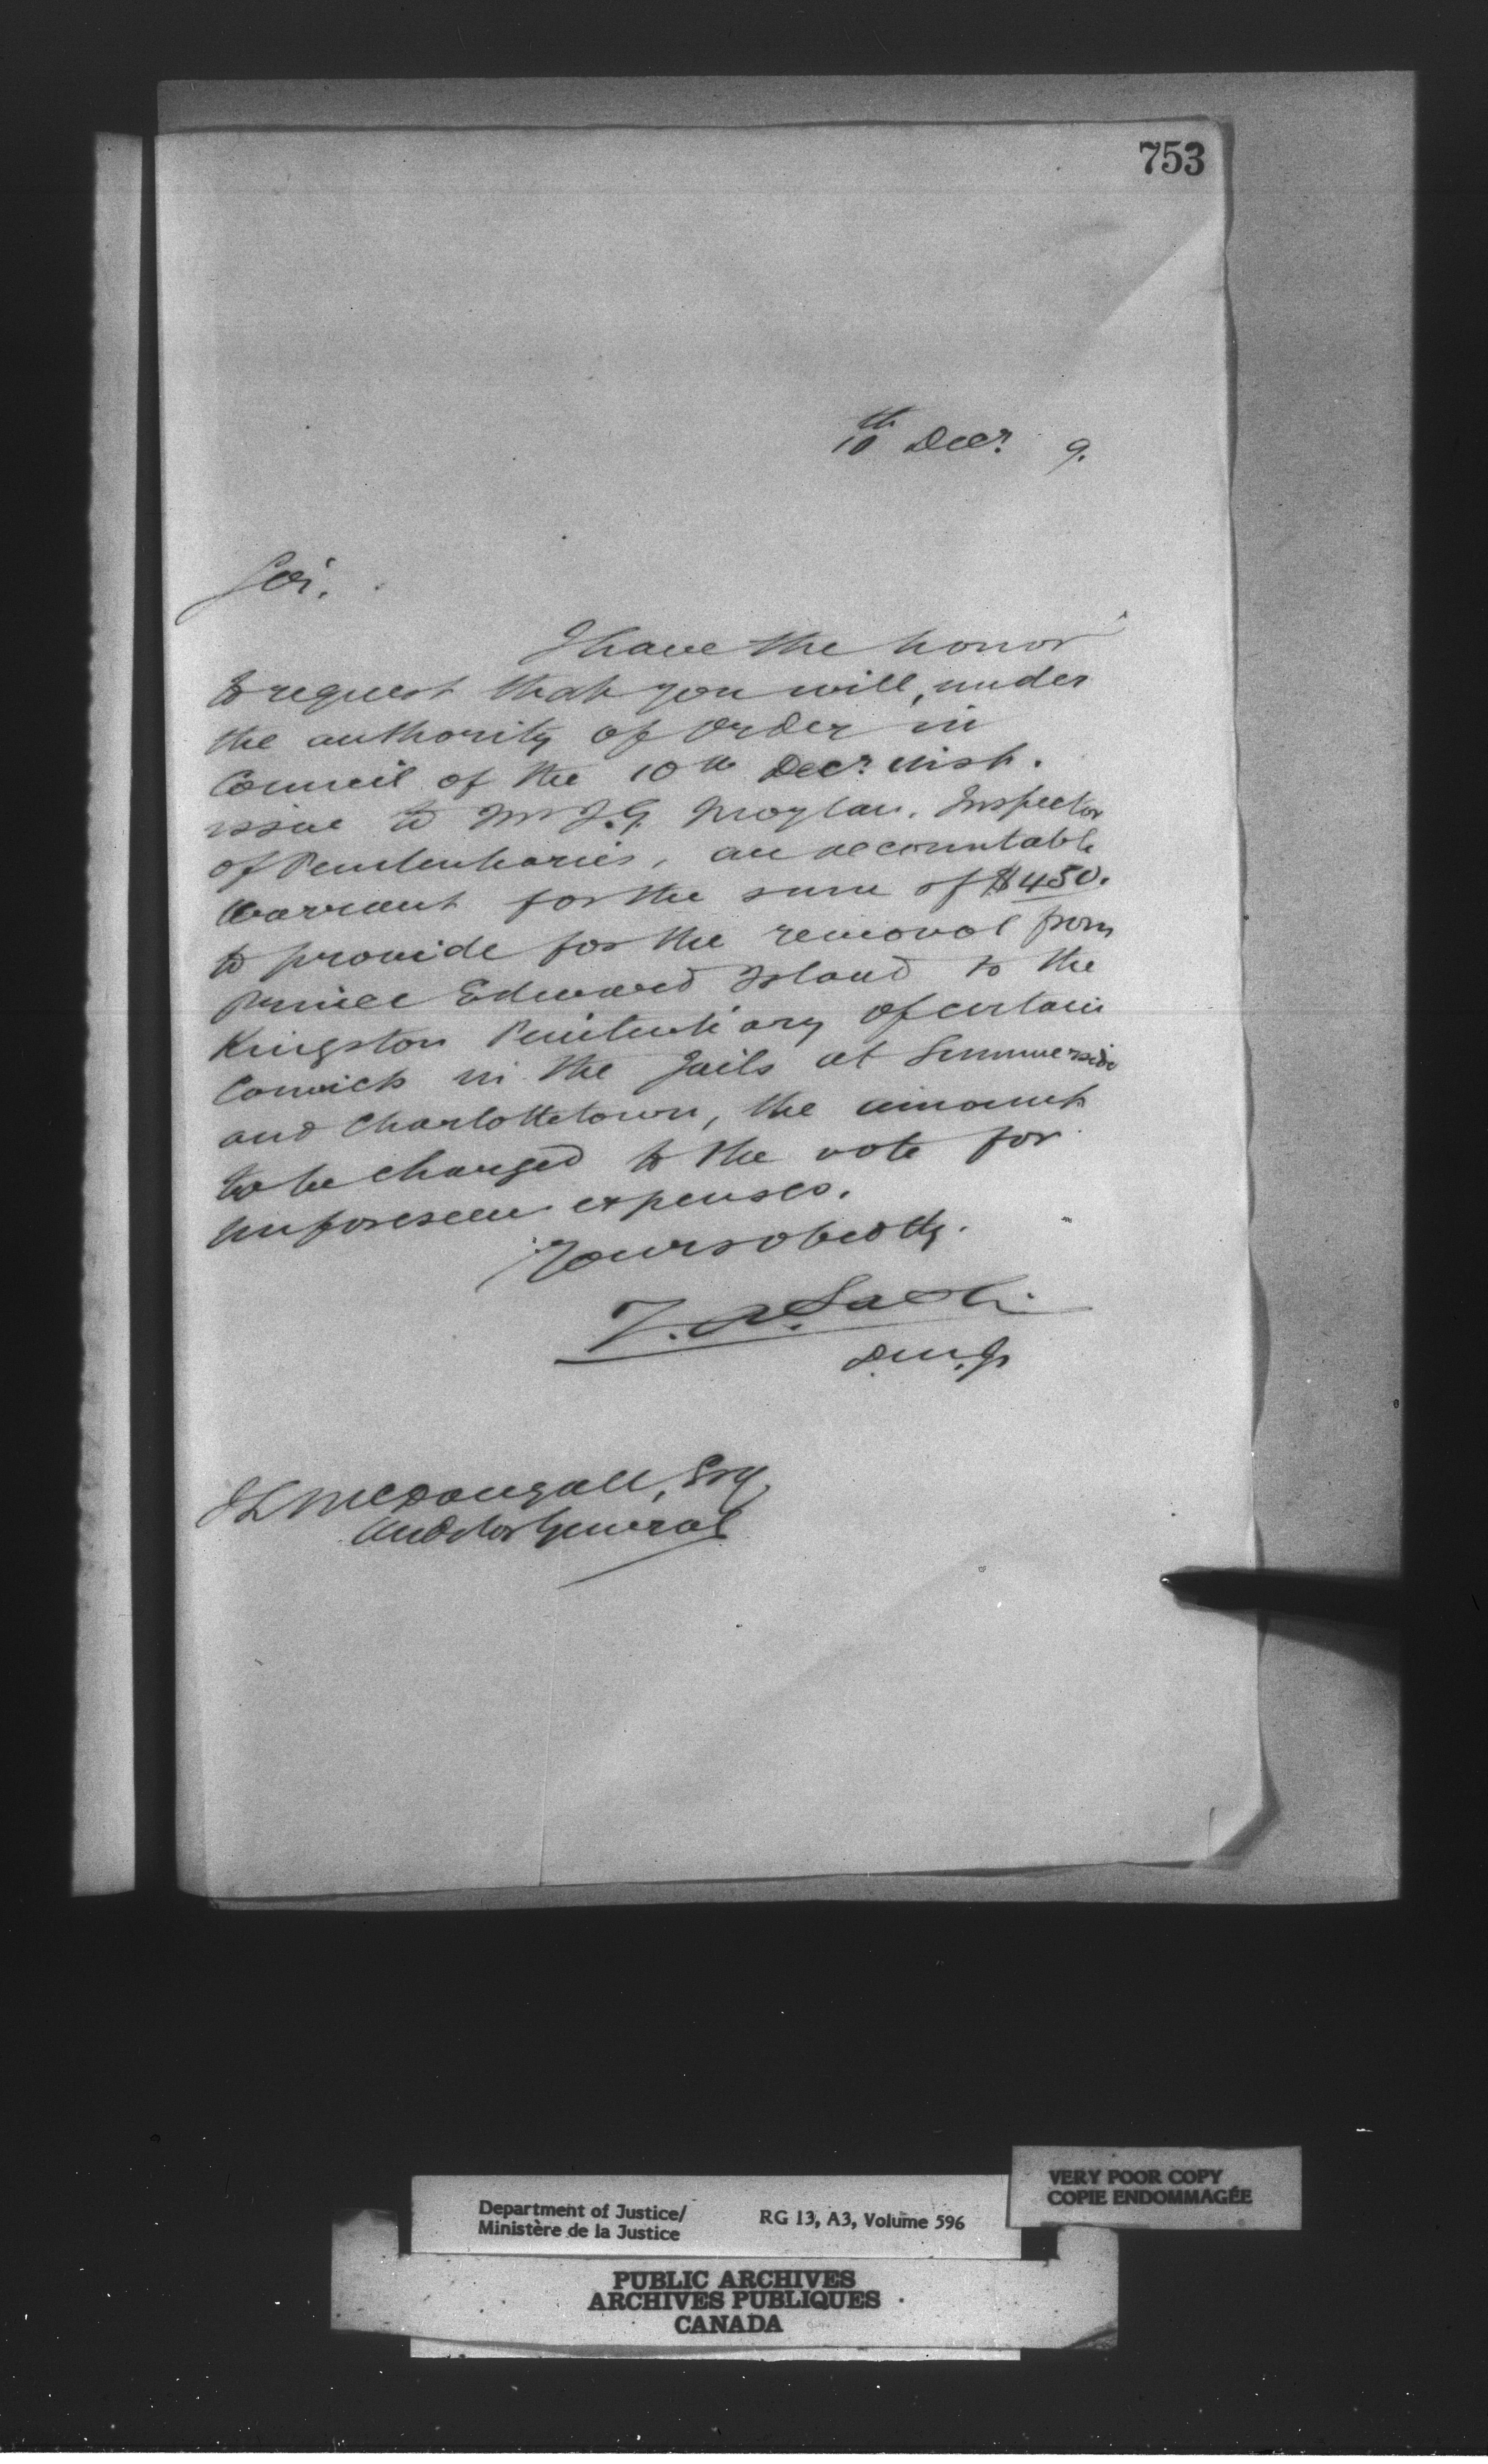 753
10th Decr. 9.
Sir.
I have the honor
to request that you will, under
the authority of Order in
Council of the 10th Decr. inst.
issue to Mr J.G. Moylan, Inspector
of Penitentiaries, an accountable
Warrant for the sum of $450.
to provide for the removal from
Prince Edward Island to the
Kingston Penitentiary of certain
Convicts in the Jails at Summerside
and Charlottetown, the amount
to be charged to the vote for
unforeseen expenses.
Yours obedtly.
D.M.J.
J L McDougall, Esq,
Auditor General
VERY POOR COPY
COPIE ENDOMMAGÉE
Department of Justice/
Ministère de la Justice
RG 13, A3, Volume 596
PUBLIC ARCHIVES
ARCHIVES PUBLIQUES
CANADA